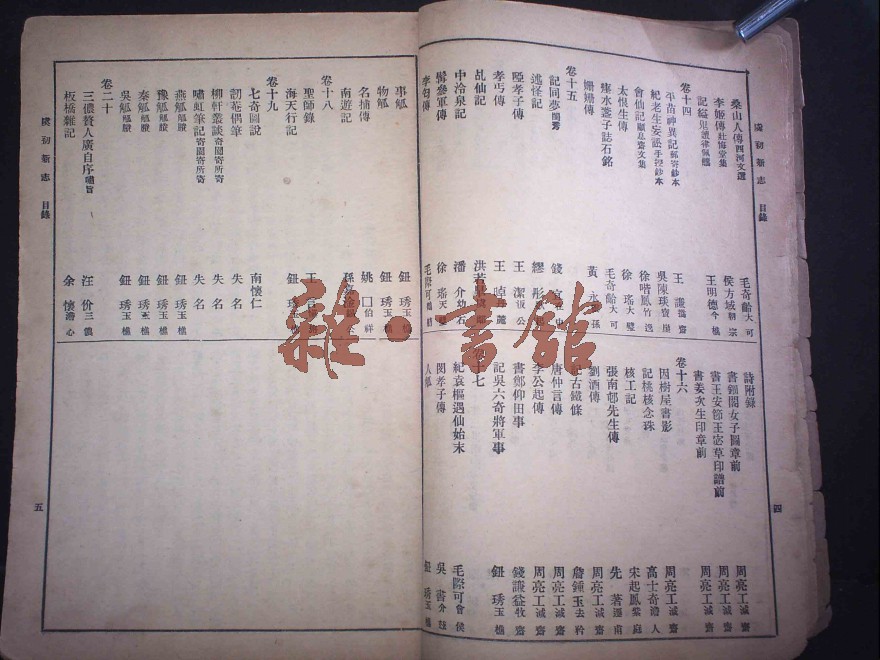 虞初新志 目錄
桑山人傳 四河文選 毛奇齡 大可
李姬傳 壯悔堂集 侯方域 朝宗
王明德 今樵
卷十四
平苗神異記 郵寄鈔本 王謙 撝齋
紀老生妄訟 手授鈔本 吳陳琰 寶崖
會仙記 徐喈鳳 竹逸
太恨生傳 徐瑤 天璧
毛奇齡 大可
姍姍傳 黃永 雲孫
卷十五
記同夢
述怪記 繆彤
啞孝子傳 王潔 汲公
孝丐傳 王晫 丹麓
乩仙記 洪若
中泠泉記 潘介 幼石
髯參軍傳 徐瑤 天璧
李丐傳 毛際可
詩附錄
書鈿閣女子圖章前 周亮工 減齋
書王安節王宓草印譜前 周亮工 減齋
書姜次生印章前 周亮工 減齋
卷十六
因樹屋書影 周亮工 減齋
記桃核念珠 高士奇 澹人
核工記 宋起鳳 紫庭
張南邨先生傳 先著 遷甫
劉酒傳 周亮工 減齋
記古鐵條 詹鍾玉 去矜
唐仲言傳 周亮工 減齋
李公起傳 周亮工 減齋
書鄭仰田事 錢謙益 牧齋
記吳六奇將軍事 鈕琇 玉樵
卷十七
紀袁樞遇仙始末 毛際可 會侯
閔孝子傳 吳晉 介茲
人觚 鈕琇 玉樵
四
事觚 鈕琇 玉樵
物觚 鈕琇 玉樵
名捕傳 姚□ 伯祥
南遊記 孫
卷十八
聖師錄 王
海天行記 鈕琇
卷十九
七奇圖說 南懷仁
訒菴偶筆 失名
柳軒叢談 寄園寄所寄 失名
嘯虹筆記 寄園寄所寄 失名
燕觚 觚賸 鈕琇 玉樵
豫觚 觚賸 鈕琇 玉樵
秦觚 觚賸 鈕琇 玉樵
吳觚 觚賸 鈕琇 玉樵
卷二十
三儂贅人廣自序 嘯旨 汪价 三儂
板橋雜記 余懷 澹心
虞初新志 目錄
五
雜·書館